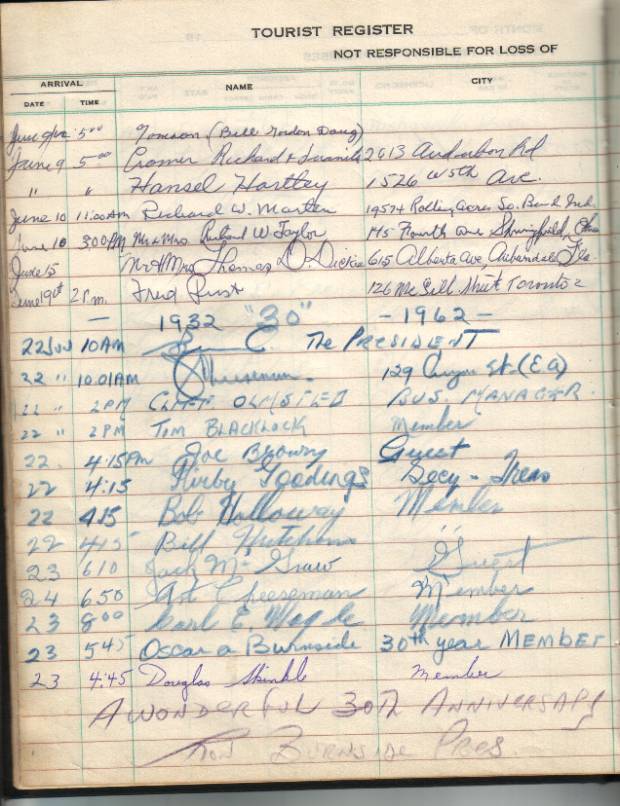 TOURIST REGISTER
NOT RESPONSIBLE FOR LOSS OF
ARRIVAL NAME CITY
DATE TIME
5:00 (Bill Gordon Doug)
June 9 5:00 Cromer Richard & Juanita 2613 Audubon Rd
" " Hansel Hartley 1526 W 5th Ave.
June 10 11:00 AM Richard W. 19574 Rolling Acres So. Bend Ind.
June 10 3:00 PM Mr & Mrs Richard W Taylor Fourth Springfield,
June 15 Mr & Mrs Thomas D. Dickie 615 Alberta Ave Auburndale Fla
June 19th 2 P.m. Fred 126 McGill Street Toronto 2
— 1932 "30" - 1962 -
22 Jun 10 AM The PRESIDENT
22 " 10.01 AM 129 St. (E.A)
22 " 2 PM CLIFF OLMSTED BUS. MANAGER.
22 " 2 PM TOM BLACKLOCK Member
22. 4:15 PM Joe Guest
22 4:15 Kirby Goodings Secy - Treas
22 415 Bob Holloway Member
22 415 Bill Hutchens "
23 610 Jack McGraw Guest
24 650 Art Cheeseman Member
23 8 00 Earl E. Member
23 5 45 Oscar a Burnside 30th year MEMBER
23 4:45 Douglas Shinkle Member
A WONDERFUL 30th ANNIVERSARY
Ron BURNSIDE PRES.